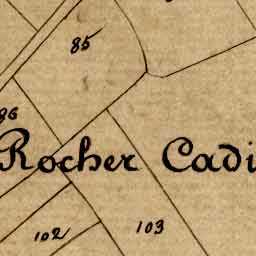 85
86
Rocher Cadi
102
103